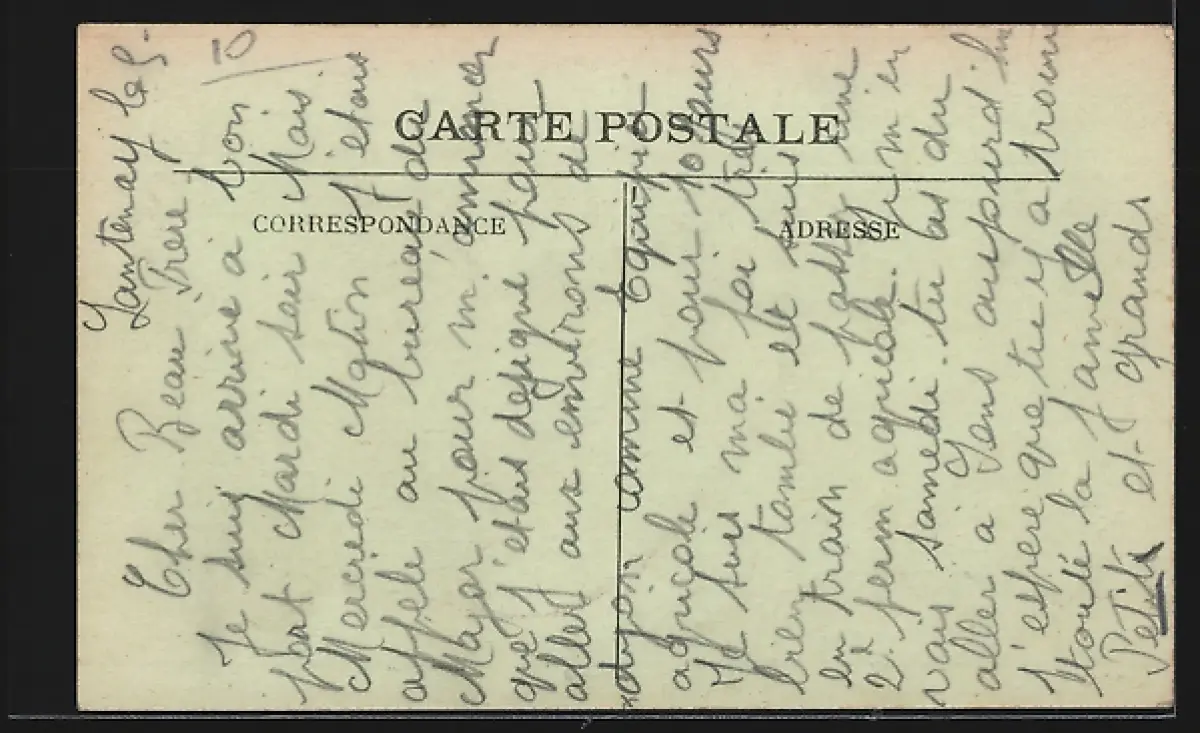 CARTE POSTALE
CORRESPONDANCE
ADRESSE
Lantenay le 5-
10
Cher Beau Frere
Je suis arrivé a bon
port Mardi soir Mais
Mercredi Matin j'etais
appele au bureau du
Major pour m'annoncer
que j'etais designe pour
aller aux environs de
comme Equipe
agricole et pour 10 jours
Je suis ma foi tres
bien tombé et suis
en train de passer une
2e perm agricole.
vais samedi
aller a Sens aujourd'hui
J'espere que tu y a trouve
toute la famille
Petits et grands